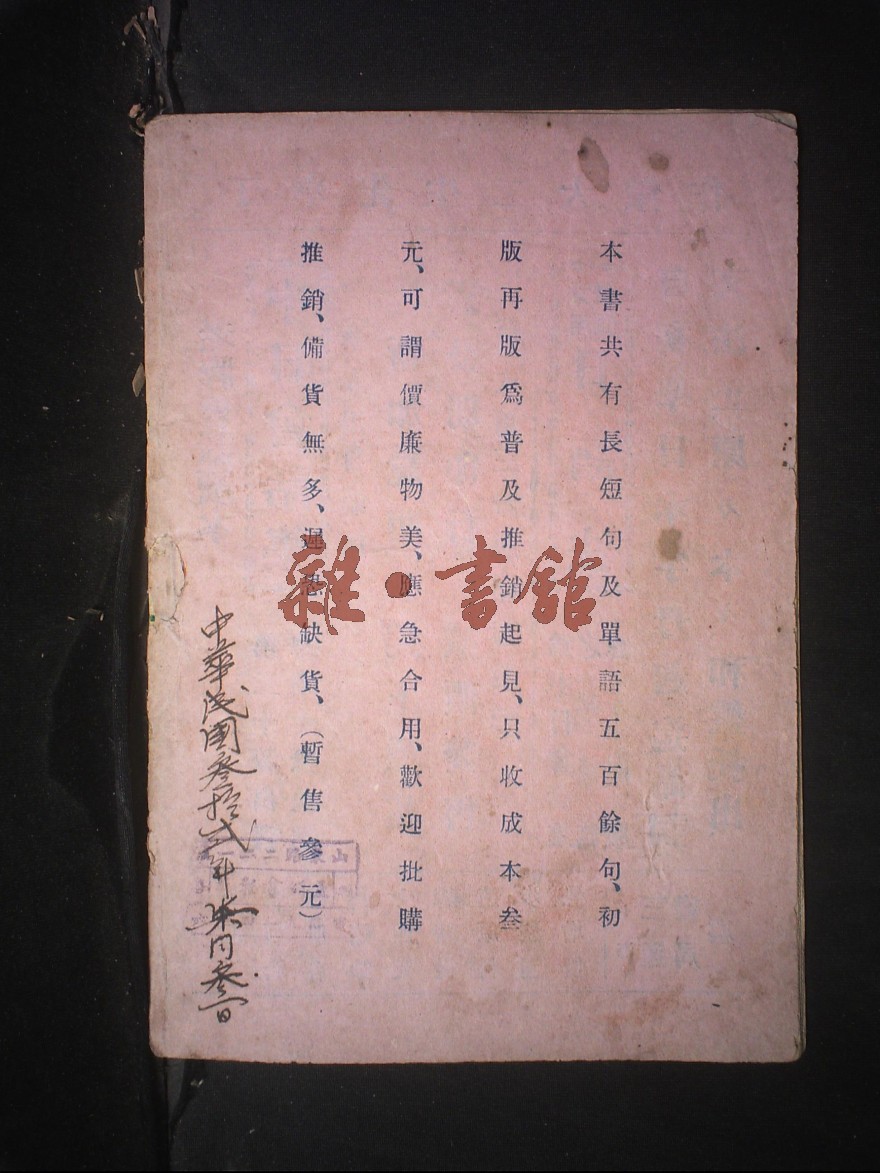 本書共有長短句及單語五百餘句、初
版再版爲普及推銷起見、只收成本叁
元、可謂價廉物美、應急合用、歡迎批購
推銷、備貨無多、遲恐缺貨、（暫售參元）
中華民國叁拾貳年柒月叁日
雜·書館